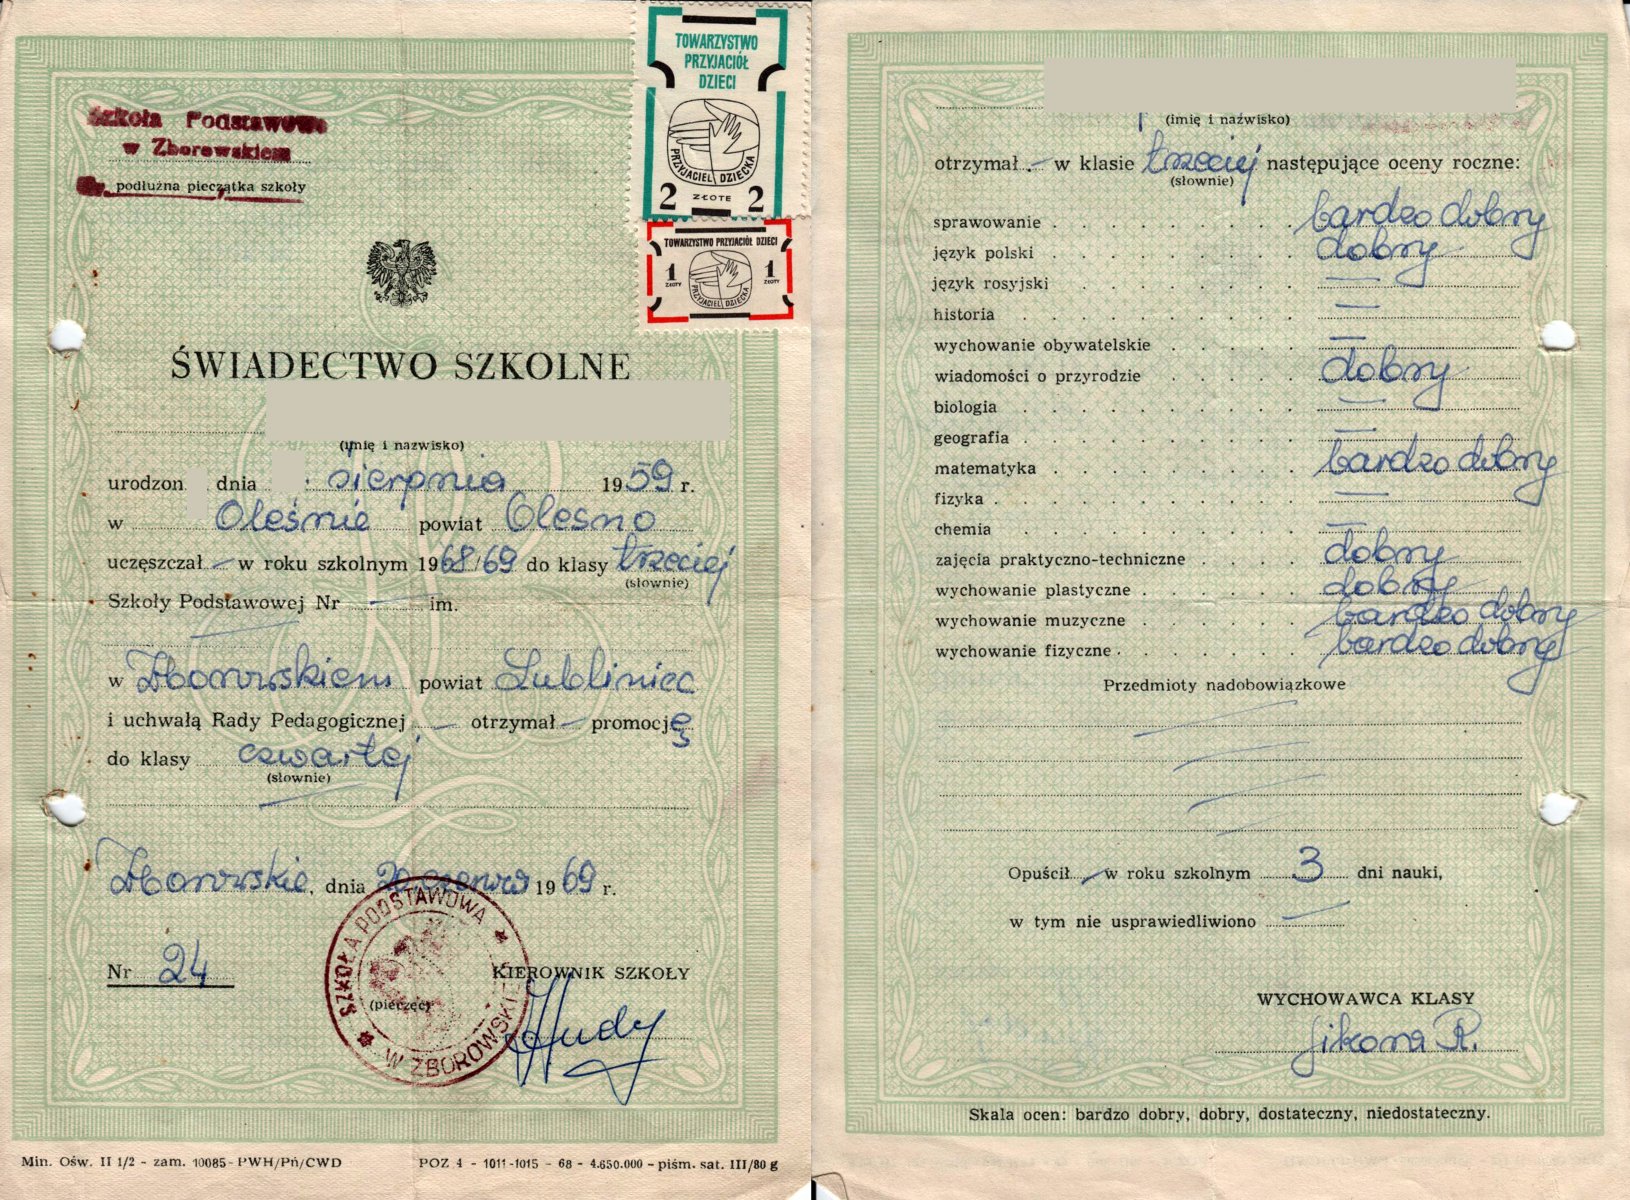 Szkoła Podstawowa
w Zborowskiem
podłużna pieczątka szkoły
TOWARZYSTWO
PRZYJACIÓŁ
DZIECI
PRZYJACIEL DZIECKA
2 ZŁOTE 2
TOWARZYSTWO PRZYJACIÓŁ DZIECI
1 1
ZŁOTY ZŁOTY
PRZYJACIEL DZIECKA
ŚWIADECTWO SZKOLNE
(imię i nazwisko)
urodzon dnia sierpnia 1959 r.
w Oleśnie powiat Olesno
uczęszczał – w roku szkolnym 1968/69 do klasy trzeciej
(słownie)
Szkoły Podstawowej Nr — im.
w Zborowskiem powiat Lubliniec
i uchwałą Rady Pedagogicznej — otrzymał – promocję
do klasy czwartej
(słownie)
Zborowskie, dnia 20 czerwca 1969 r.
Nr 24
(pieczęć)
SZKOŁA PODSTAWOWA
W ZBOROWSKIEM
KIEROWNIK SZKOŁY
Hudy
Min. Ośw. II 1/2 - zam. 10085- PWH/Pń/CWD POZ 4 - 1011-1015 - 68 - 4.650.000 - piśm. sat. III/80 g
(imię i nazwisko)
otrzymał – w klasie trzeciej następujące oceny roczne:
(słownie)
sprawowanie bardzo dobry
język polski dobry
język rosyjski —
historia —
wychowanie obywatelskie —
wiadomości o przyrodzie dobry
biologia —
geografia —
matematyka bardzo dobry
fizyka —
chemia —
zajęcia praktyczno-techniczne dobry
wychowanie plastyczne dobry
wychowanie muzyczne bardzo dobry
wychowanie fizyczne bardzo dobry
Przedmioty nadobowiązkowe
Opuścił – w roku szkolnym 3 dni nauki,
w tym nie usprawiedliwiono —
WYCHOWAWCA KLASY
Sikora R.
Skala ocen: bardzo dobry, dobry, dostateczny, niedostateczny.